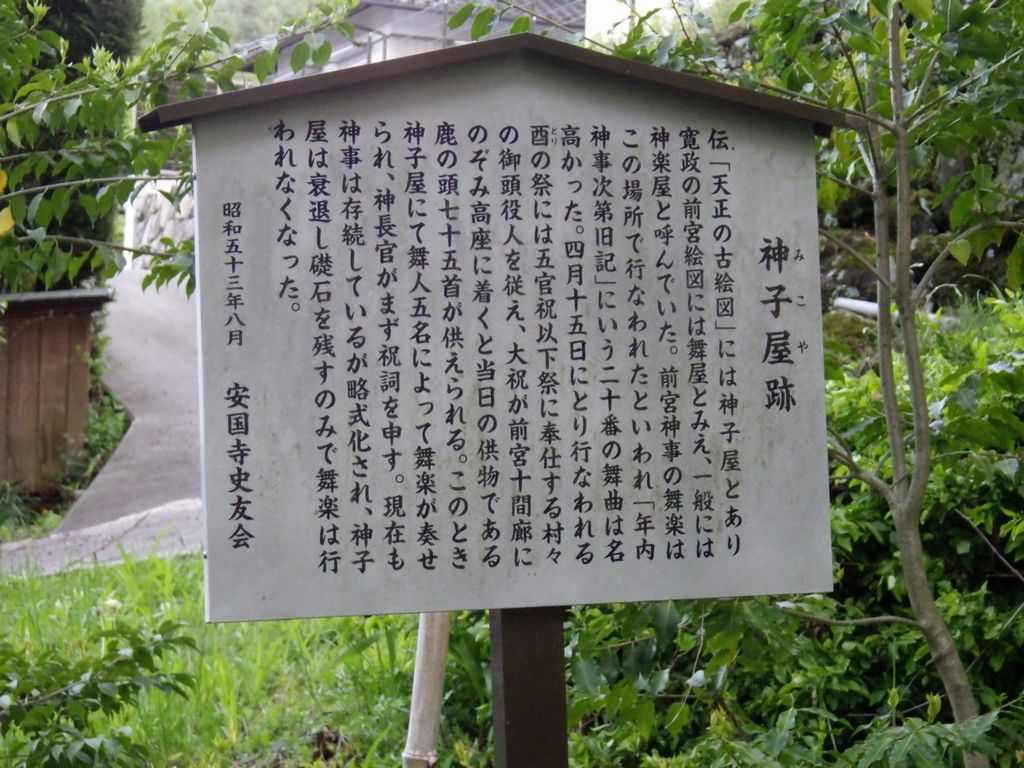 神子屋跡
みこや
伝「天正の古絵図」には神子屋とあり
寛政の前宮絵図には舞屋とみえ、一般には
神楽屋と呼んでいた。前宮神事の舞楽は
この場所で行なわれたといわれ「年内
神事次第旧記」にいう二十番の舞曲は名
高かった。四月十五日にとり行なわれる
酉の祭には五官祝以下祭に奉仕する村々
とり
の御頭役人を従え、大祝が前宮十間廊に
のぞみ高座に着くと当日の供物である
鹿の頭七十五首が供えられる。このとき
神子屋にて舞人五名によって舞楽が奏せ
られ、神長官がまず祝詞を申す。現在も
神事は存続しているが略式化され、神子
屋は衰退し礎石を残すのみで舞楽は行
われなくなった。
昭和五十三年八月 安国寺史友会